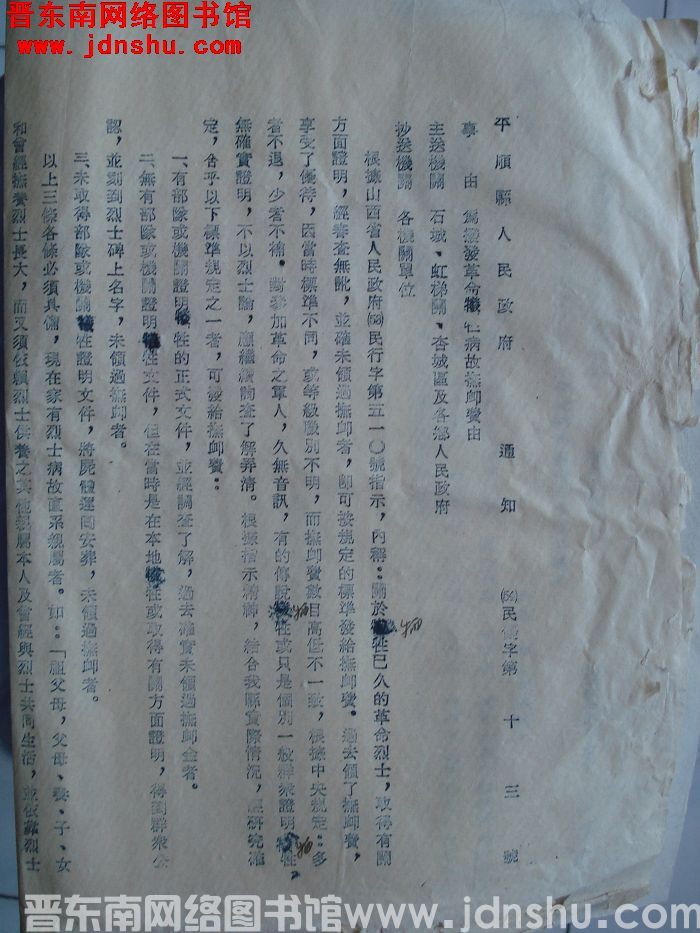 晋东南网络图书馆
www.jdnshu.com
平順縣人民政府 通知 (56)民優字第十三號
事由 為撥發革命犧牲病故撫卹費由
主送機關 石城、虹梯關、杏城區及各鄉人民政府
抄送機關 各機關單位
根據山西省人民政府(56)民行字第五一〇號指示,內稱:關於犧牲已久的革命烈士,取得有關
方面證明,經審查無訛,並確未領過撫卹者,卽可按規定的標準發給撫卹費。過去領了撫卹費,
享受了優待,因當時標準不同,或等級職別不明,而撫卹費數目高低不一致,根據中央規定:多
者不退,少者不補。對參加革命之軍人,久無音訊,有的傳說犧牲或只是個別一般群衆證明犧牲
無確實證明,不以烈士論,應繼續調查了解弄清。根據指示精神,結合我縣實際情況,經研究確
定,合乎以下標準規定之一者,可發給撫卹費:
一、有部隊或機關證明犧牲的正式文件,並經調查了解,過去確實未領過撫卹金者。
二、無有部隊或機關證明犧牲文件,但在當時是在本地犧牲或取得有關方面證明,得到群衆公
認,並刻到烈士碑上名字,未領過撫卹者。
三、未取得部隊或機關犧牲證明文件,將屍體運回安葬,未領過撫卹者。
以上三條各條必須具備,現在家有烈士病故直系親屬者。如:「祖父母,父母、妻、子、女
和曾經撫養烈士長大,而又須依賴烈士供養之其他親屬本人及曾經與烈士共同生活,並依靠烈士
晋东南网络图书馆 www.jdnshu.com